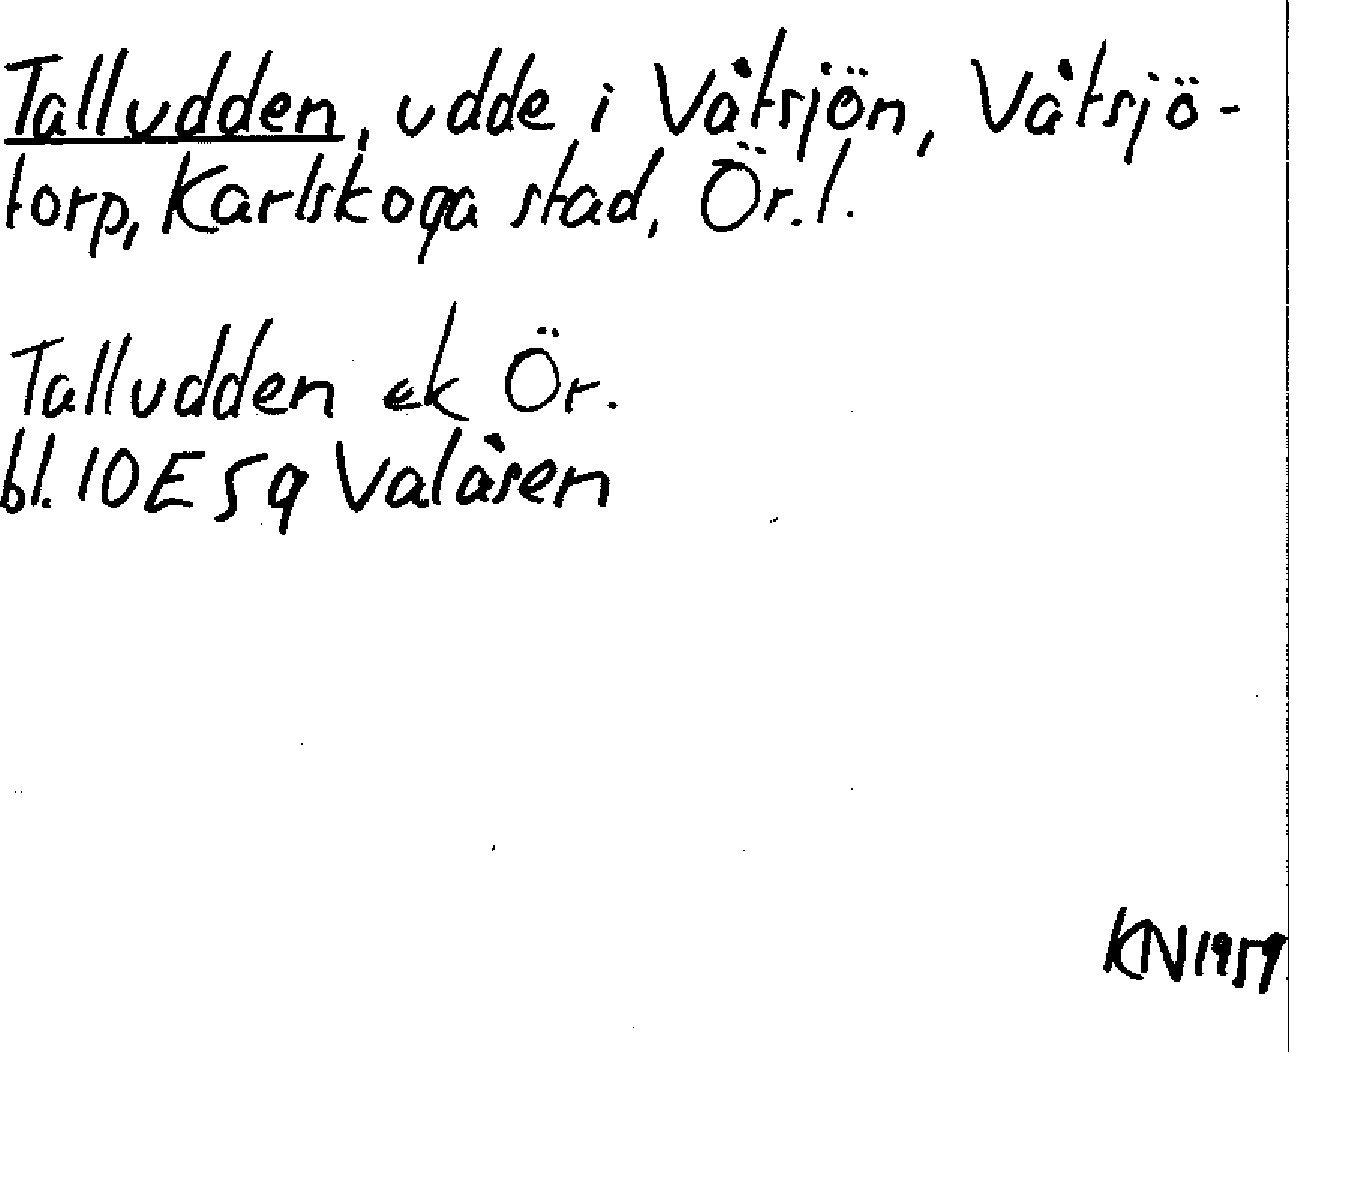 Talludden, udde i Våtsjön, Våtsjö-
torp, Karlskoga stad, Ör. l.
Talludden ek Ör.
bl. 10E5q Valåsen
KN1959